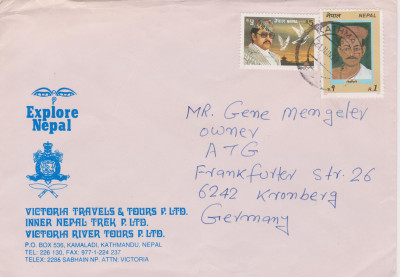 नेपाल NEPAL
नेपाल NEPAL
रु १ R.1
Explore
Nepal
MR. Gene Mengeler
owner
ATG
Frankfurter Str. 26
6242 Kronberg
Germany
VICTORIA TRAVELS & TOURS P. LTD.
INNER NEPAL TREK P. LTD.
VICTORIA RIVER TOURS P. LTD.
P.O. BOX 536, KAMALADI, KATHMANDU, NEPAL
TEL: 226 130, FAX: 977-1-224 237
TELEX: 2298 SABHAIN NP. ATTN: VICTORIA